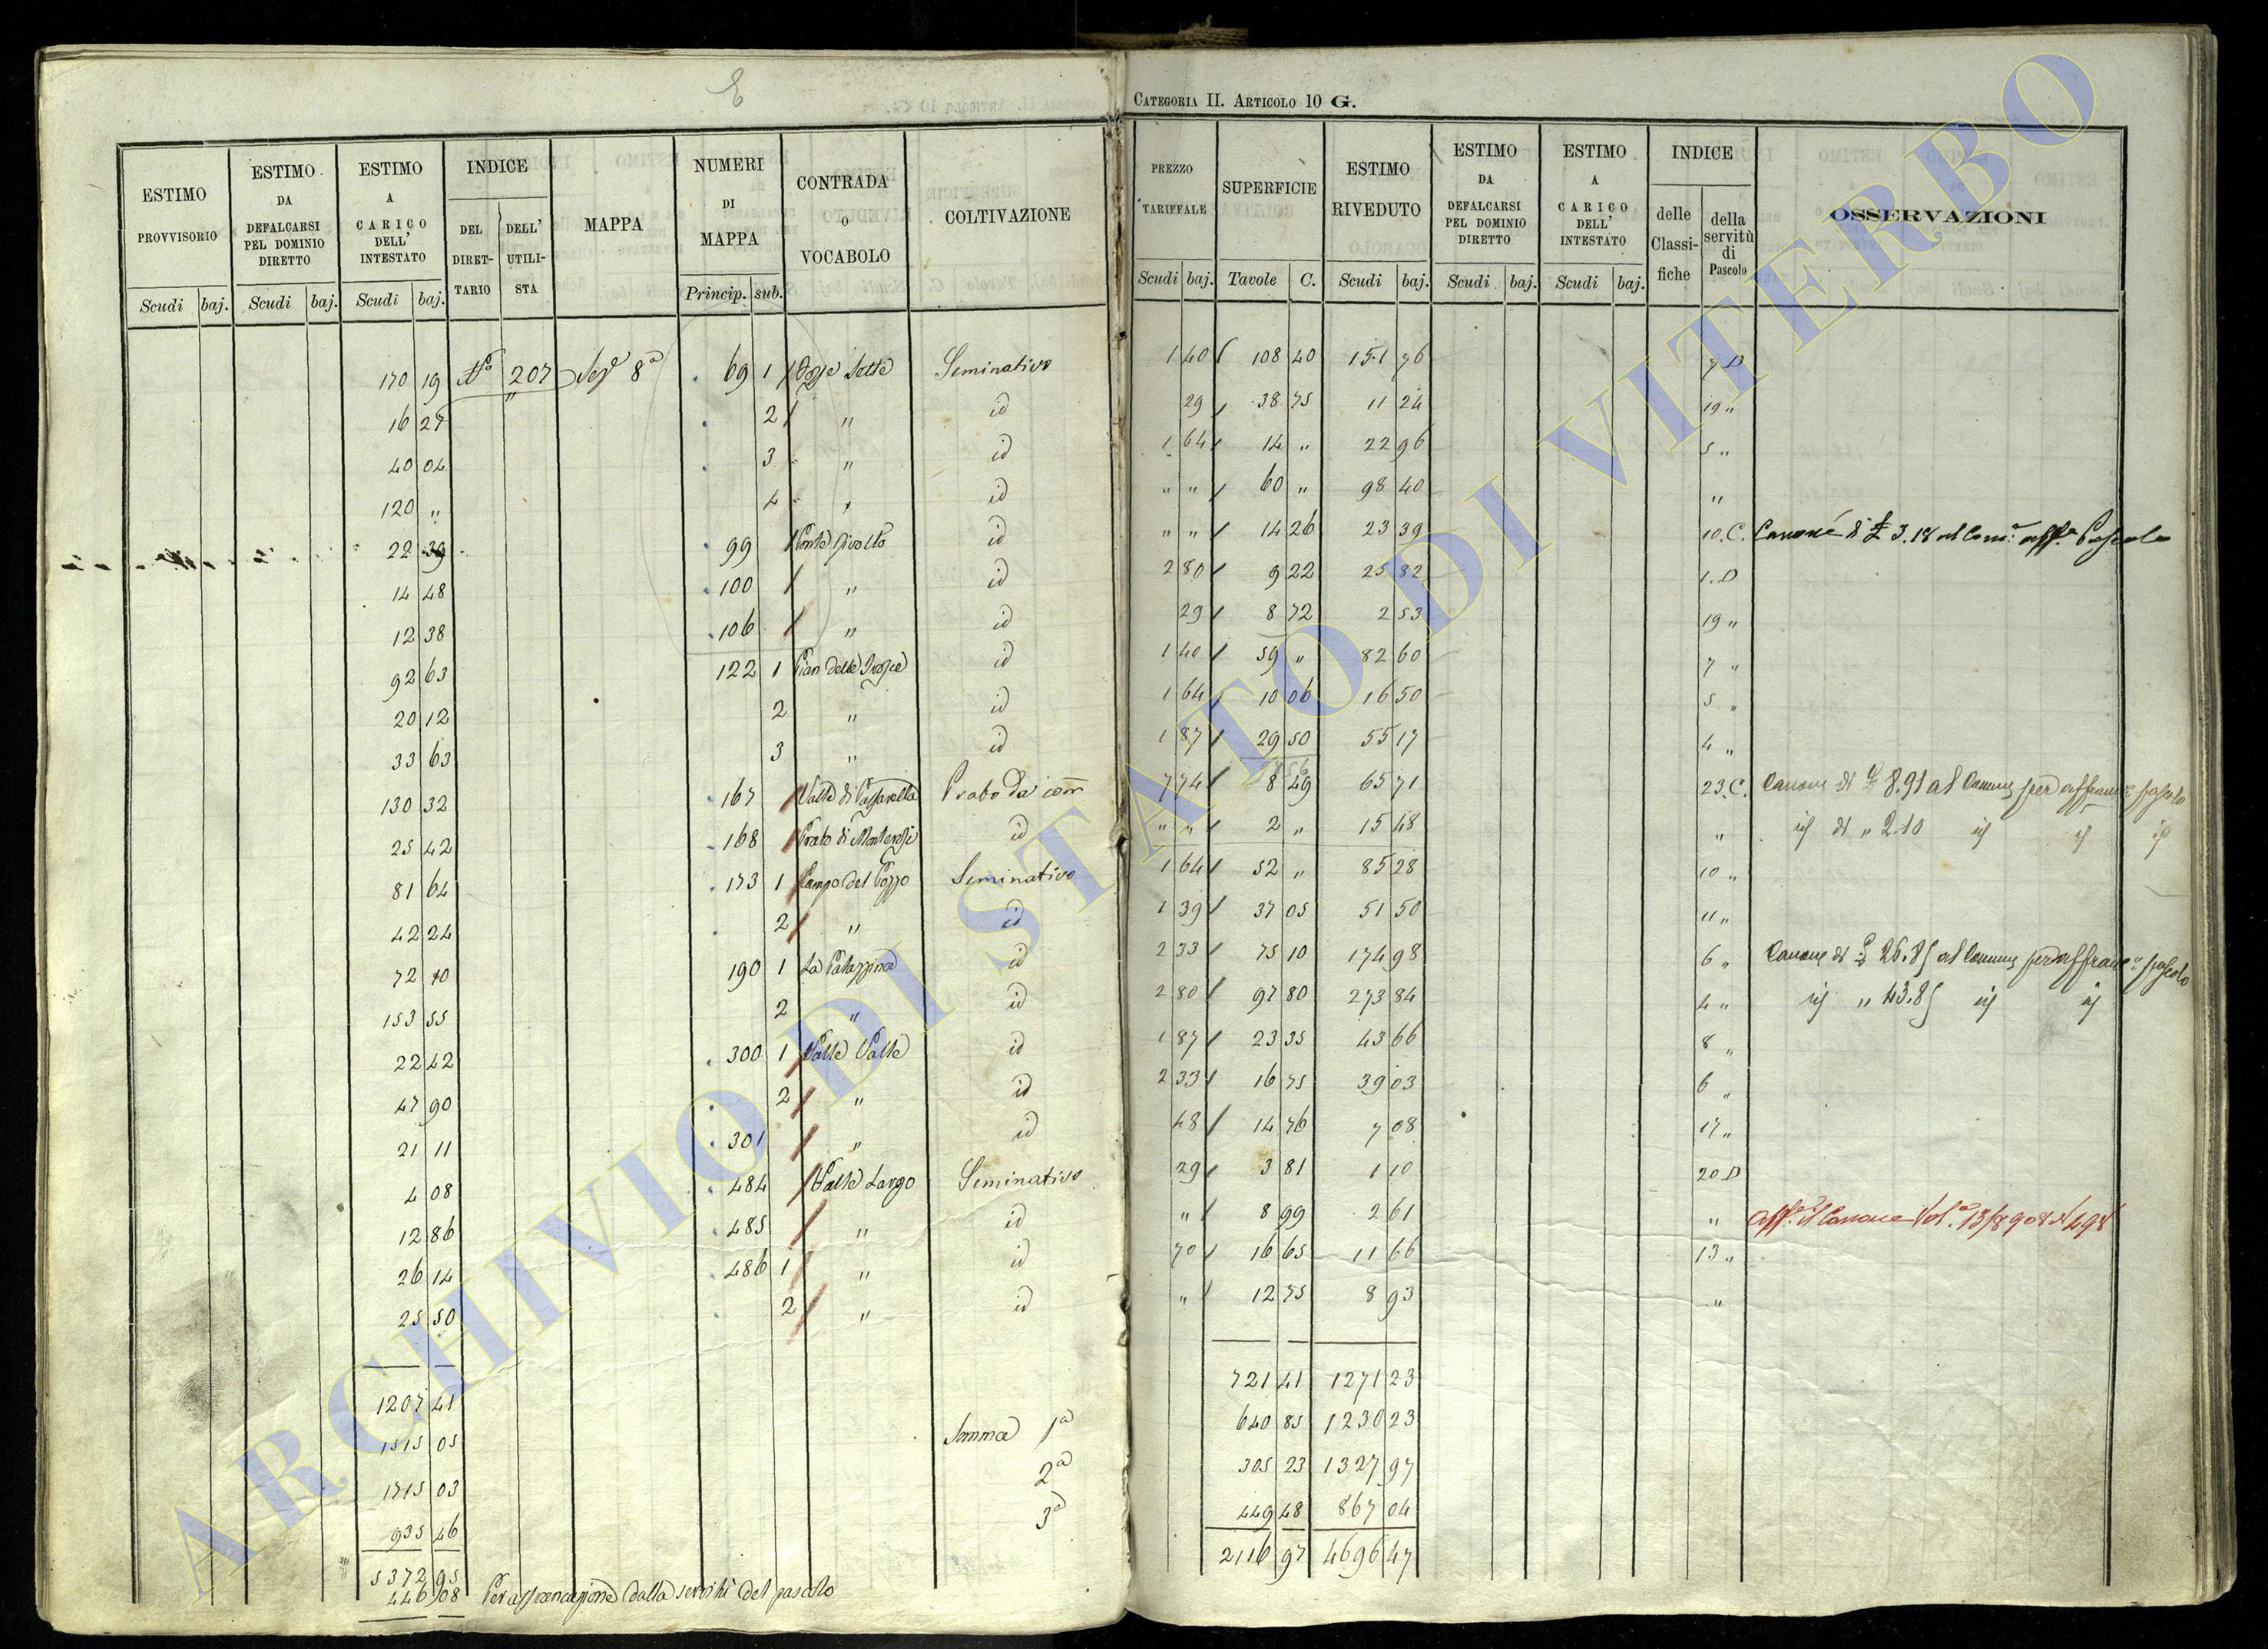 E
CATEGORIA II. ARTICOLO 10 G.
ESTIMO PROVVISORIO | ESTIMO DA DEFALCARSI PEL DOMINIO DIRETTO | ESTIMO A CARICO DELL' INTESTATO | INDICE DEL DIRETTARIO | DELL' UTILISTA | MAPPA | NUMERI DI MAPPA | CONTRADA O VOCABOLO | COLTIVAZIONE | PREZZO TARIFFALE | SUPERFICIE | ESTIMO RIVEDUTO | ESTIMO DA DEFALCARSI PEL DOMINIO DIRETTO | ESTIMO A CARICO DELL' INTESTATO | INDICE delle Classifiche | della servitù di Pascolo | OSSERVAZIONI
Scudi baj. | Scudi baj. | Scudi baj. | Princip. sub. | Scudi baj. | Tavole C. | Scudi baj. | Scudi baj. | Scudi baj.
170 19 | 207 | 8ª | 69 1 | Sette | Seminativo | 1 40 | 108 40 | 151 76 | 7 D
16 27 | " | 2 | " | id | 29 | 38 75 | 11 24 | 19 "
40 04 | 3 | " | id | 1 64 | 14 " | 22 96 | 5 "
120 " | 4 | " | id | " " | 60 " | 98 40 | "
22 39 | 99 | id | " " | 14 26 | 23 39 | 10. C. | Canone di £ 3.18 al
14 48 | 100 | " | id | 2 80 | 9 22 | 25 82 | 1. D
12 38 | 106 | " | id | 29 | 8 72 | 2 53 | 19 "
92 63 | 122 1 | Pian delle | id | 1 40 | 59 " | 82 60 | 7 "
20 12 | 2 | " | id | 1 64 | 10 06 | 16 50 | 5 "
33 63 | 3 | " | id | 1 87 | 29 50 | 55 17 | 4 "
130 32 | 167 | Valle di | Prato da | 7 74 | 8 49 | 65 71 | 23. C. | Canone di £ 8.91 al Comune per affranc. pascolo
25 42 | 168 | Prato di Monterosi | id | " " | 2 " | 15 48 | " | id di " 2.10 id id id
81 64 | 173 1 | Campo del Pozzo | Seminativo | 1 64 | 52 " | 85 28 | 10 "
42 24 | 2 | " | id | 1 39 | 37 05 | 51 50 | 11 "
72 10 | 190 1 | La Palazzina | id | 2 33 | 75 10 | 174 98 | 6 " | Canone di £ 26.85 al Comune per affranc. pascolo
153 55 | 2 | " | id | 2 80 | 97 80 | 273 84 | 4 " | id " 43.85 id id
22 42 | 300 1 | Valle | id | 1 87 | 23 35 | 43 66 | 8 "
47 90 | 2 | " | id | 2 33 | 16 75 | 39 03 | 6 "
21 11 | 301 | " | id | 48 | 14 76 | 7 08 | 17 "
4 08 | 484 | Valle Largo | Seminativo | 29 | 3 81 | 1 10 | 20 D
12 86 | 485 | " | id | " | 8 99 | 2 61 | " | il Canone
26 14 | 486 1 | " | id | 70 | 16 65 | 11 66 | 13 "
25 50 | 2 | " | id | " | 12 75 | 8 93 | "
1207 41 | 721 41 | 1271 23
1515 05 | Somma 1ª | 640 85 | 1230 23
1715 03 | 2ª | 305 23 | 1327 97
935 46 | 3ª | 449 48 | 867 04
5372 95 | 2116 97 | 4696 47
446 08 Per affrancazione dalla servitù del pascolo
ARCHIVIO DI STATO DI VITERBO